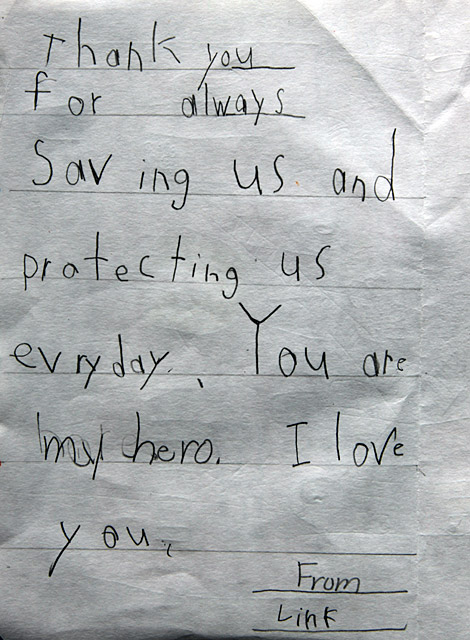 Thank you
for always
Saving us and
protecting us
evryday. You are
my hero. I love
you.
From
Link